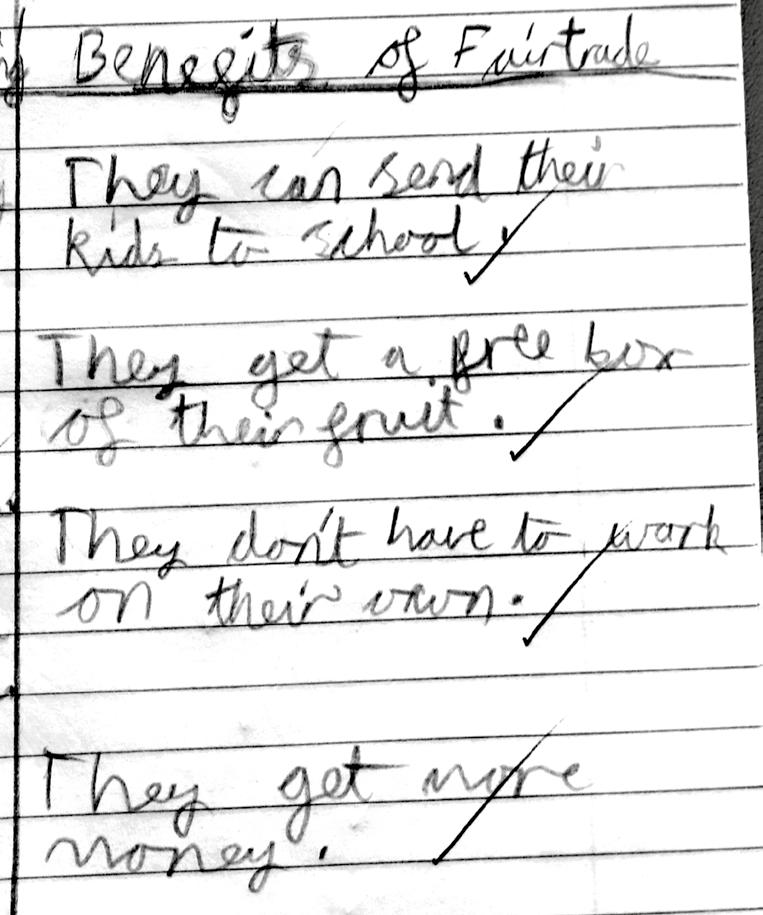 Benefits of Fairtrade
They can send their
kids to school.
They get a free box
of their fruit.
They don't have to work
on their own.
They get more
money.